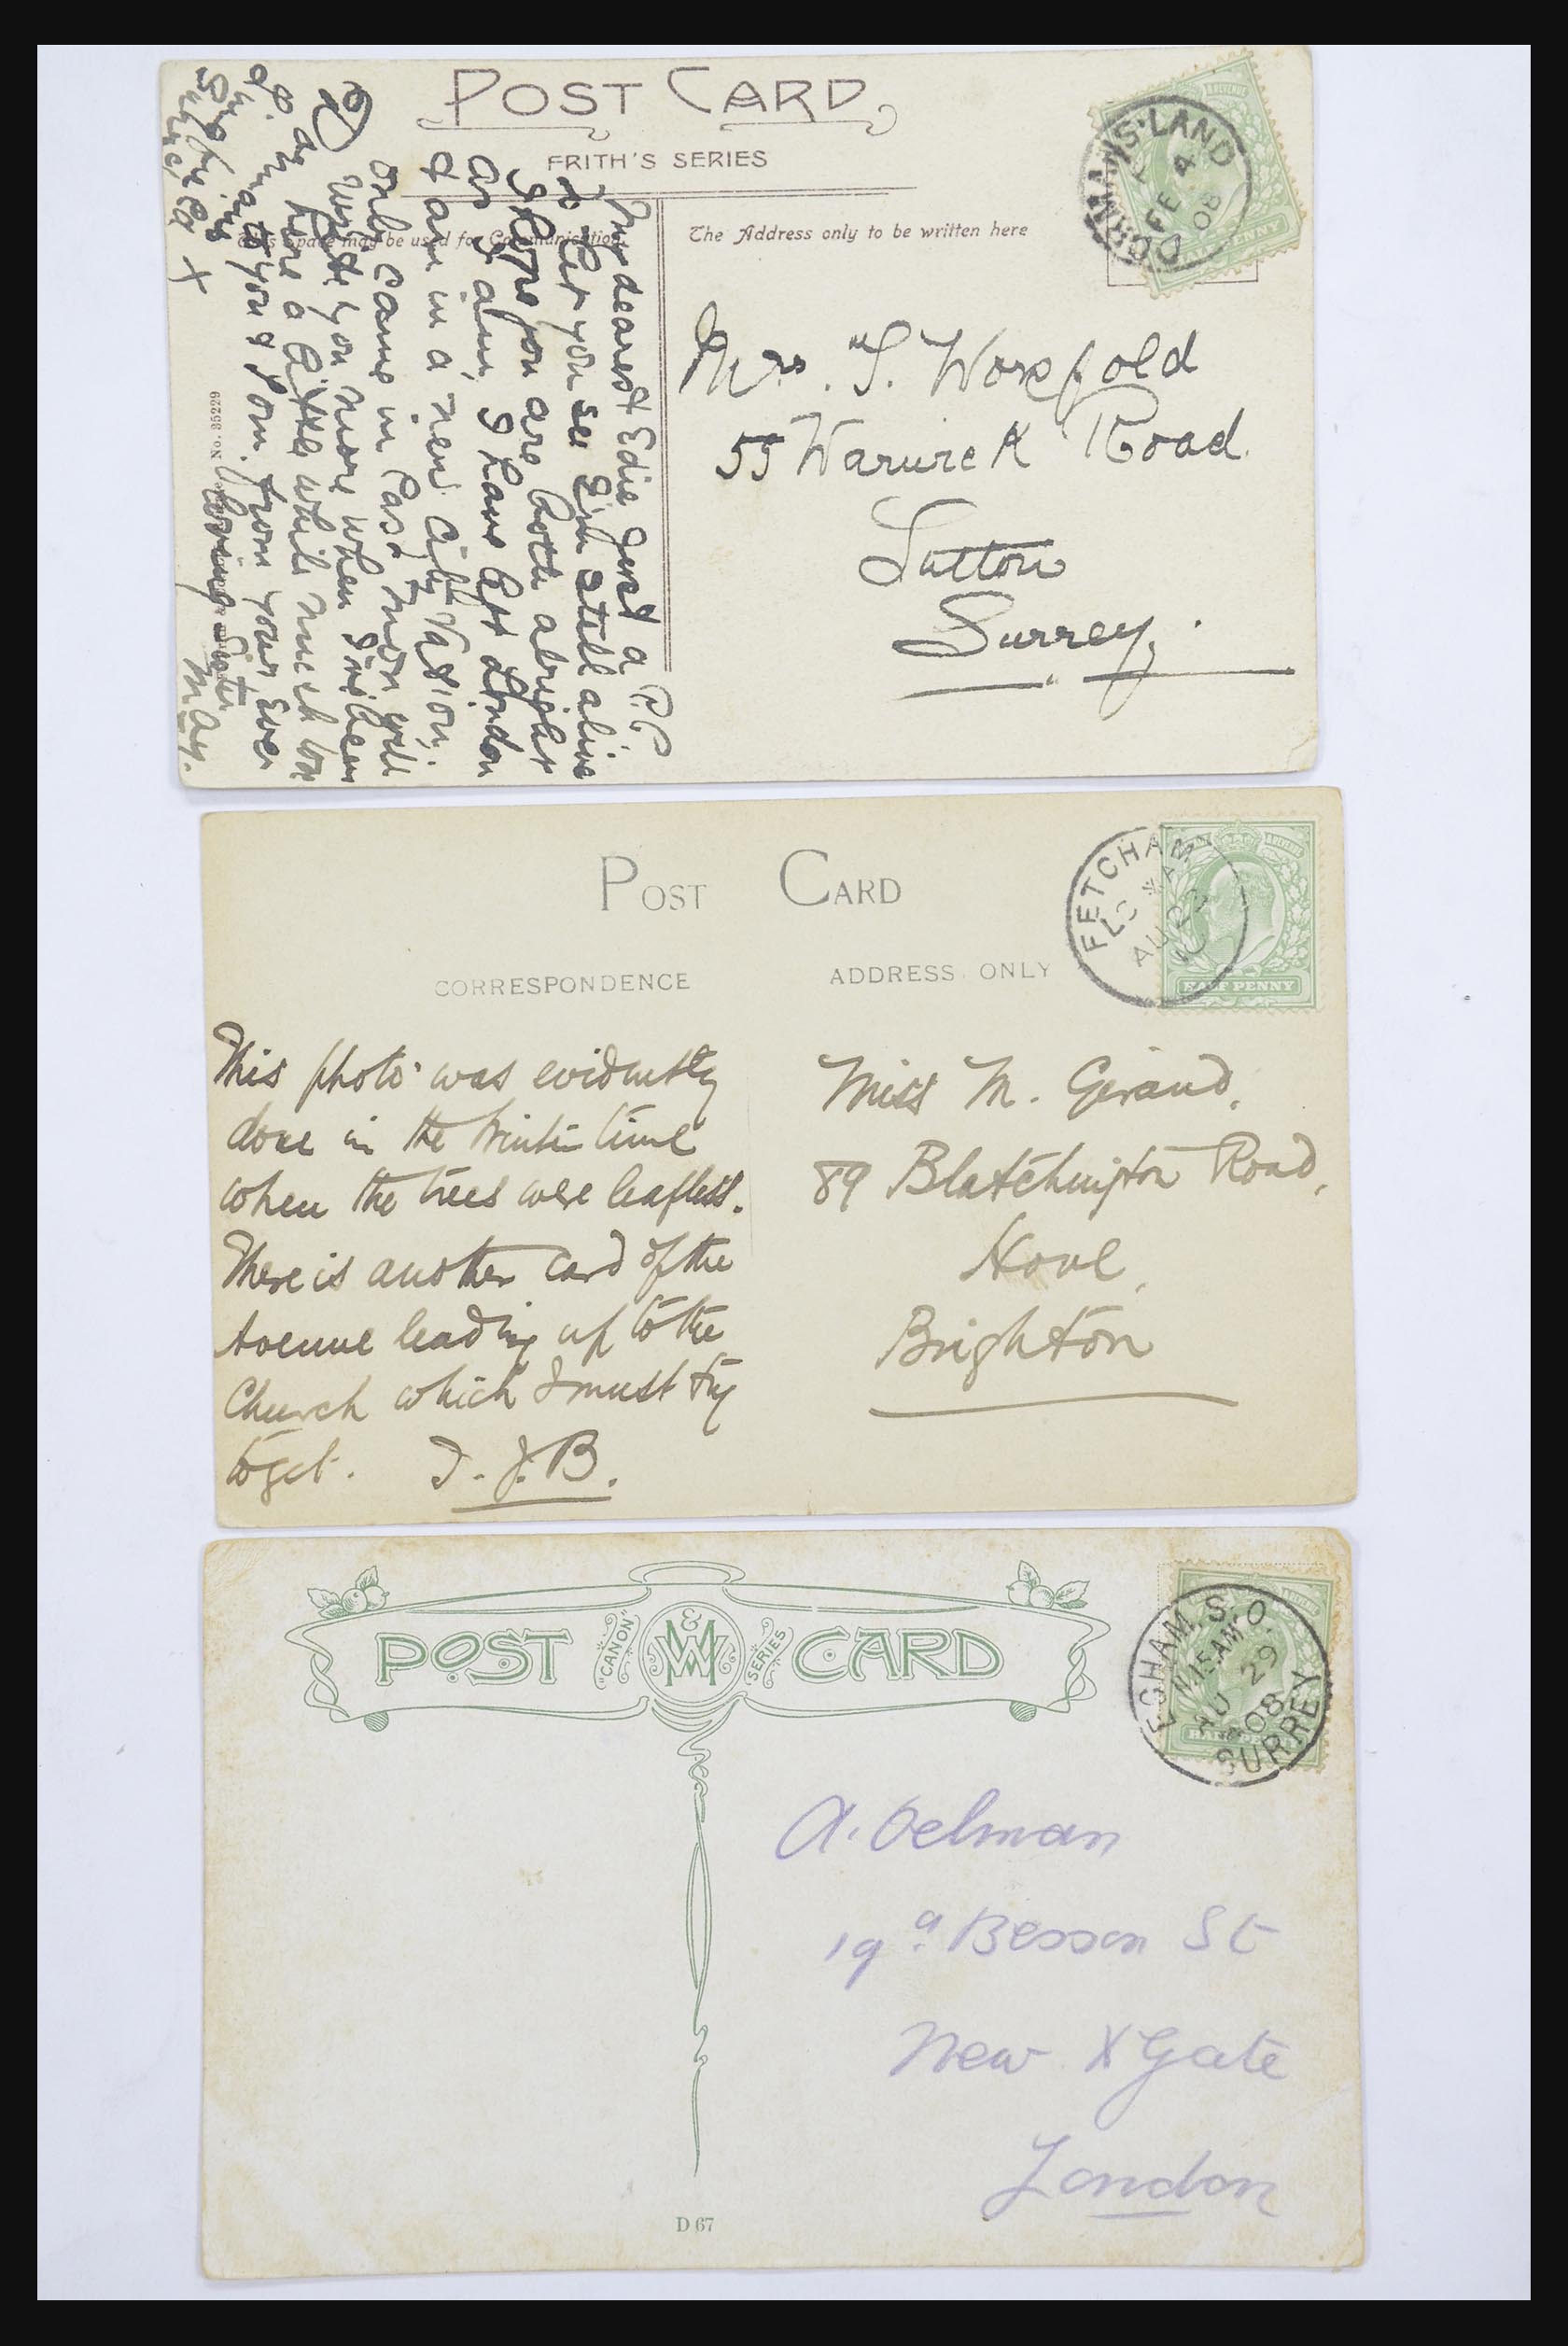 POST CARD
FRITH'S SERIES
This Space may be used for Communication.
The Address only to be written here
CORMAN'S·LAND
FE 4
08
My dearest Edie Just a P.C
to let you see I'm still alive
I hope you are both alright
as I am, I have left London
& am in a new
only came in last mon will
write you more when I've been
here a little while much love
to you & Tom. from your ever
loving Sister
May.
X
No. 35229
Mrs. T. Worsfold
55 Warwick Road.
Sutton
Surrey.
POST CARD
CORRESPONDENCE
ADDRESS ONLY
FETCHAM
AU 23
HALF PENNY
This photo was evidently
done in the Winter time
when the trees were leafless.
There is another card of the
Avenue leading up to the
Church which I must try
to get. I. J. B.
Miss M. Geraud,
89 Blatchington Road,
Hove,
Brighton
POST CARD
"CANON" SERIES
M & W
EGHAM, S.O.
11.15AM
AU 29
08
SURREY
A. Oelman
19a Besson St
New X Gate
London
D 67